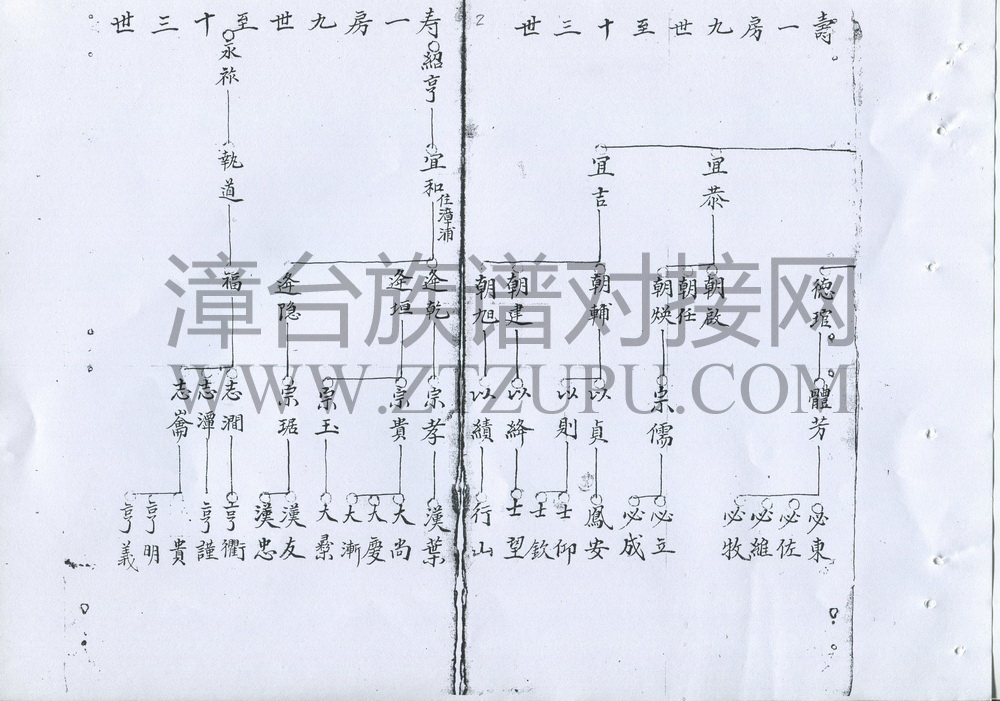 壽一房九世至十三世
宜恭
宜吉
德琯
朝啟
朝任
朝煐
朝輔
朝建
朝旭
體芳
宗儒
以貞
以則
以絳
以績
必東
必佐
必維
必牧
必立
必成
鳳安
士仰
士欽
士望
行山
2
寿一房九世至十三世
紹亨
永祿
宜和
住漳浦
執道
逢乾
逢垣
逢隐
福
宗孝
宗貴
宗玉
宗琚
志澗
志潭
志崙
漢葉
大尚
大慶
大漸
漢友
漢忠
亨衢
亨謹
貴
亨明
亨義
漳台族谱对接网
WWW.ZTZUPU.COM